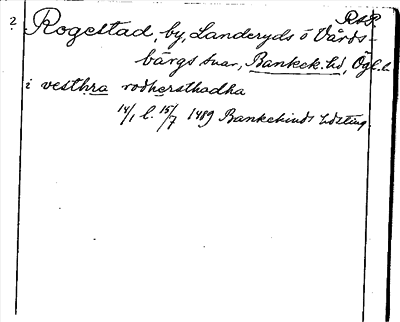 2 Rogestad, by, Landeryds o Vårds-
bärgs snar, Bankek. hd, Ögl. l.
i vesthra rodhersthadha
14/1 l. 15/7 1489 Bankekinds hdsting